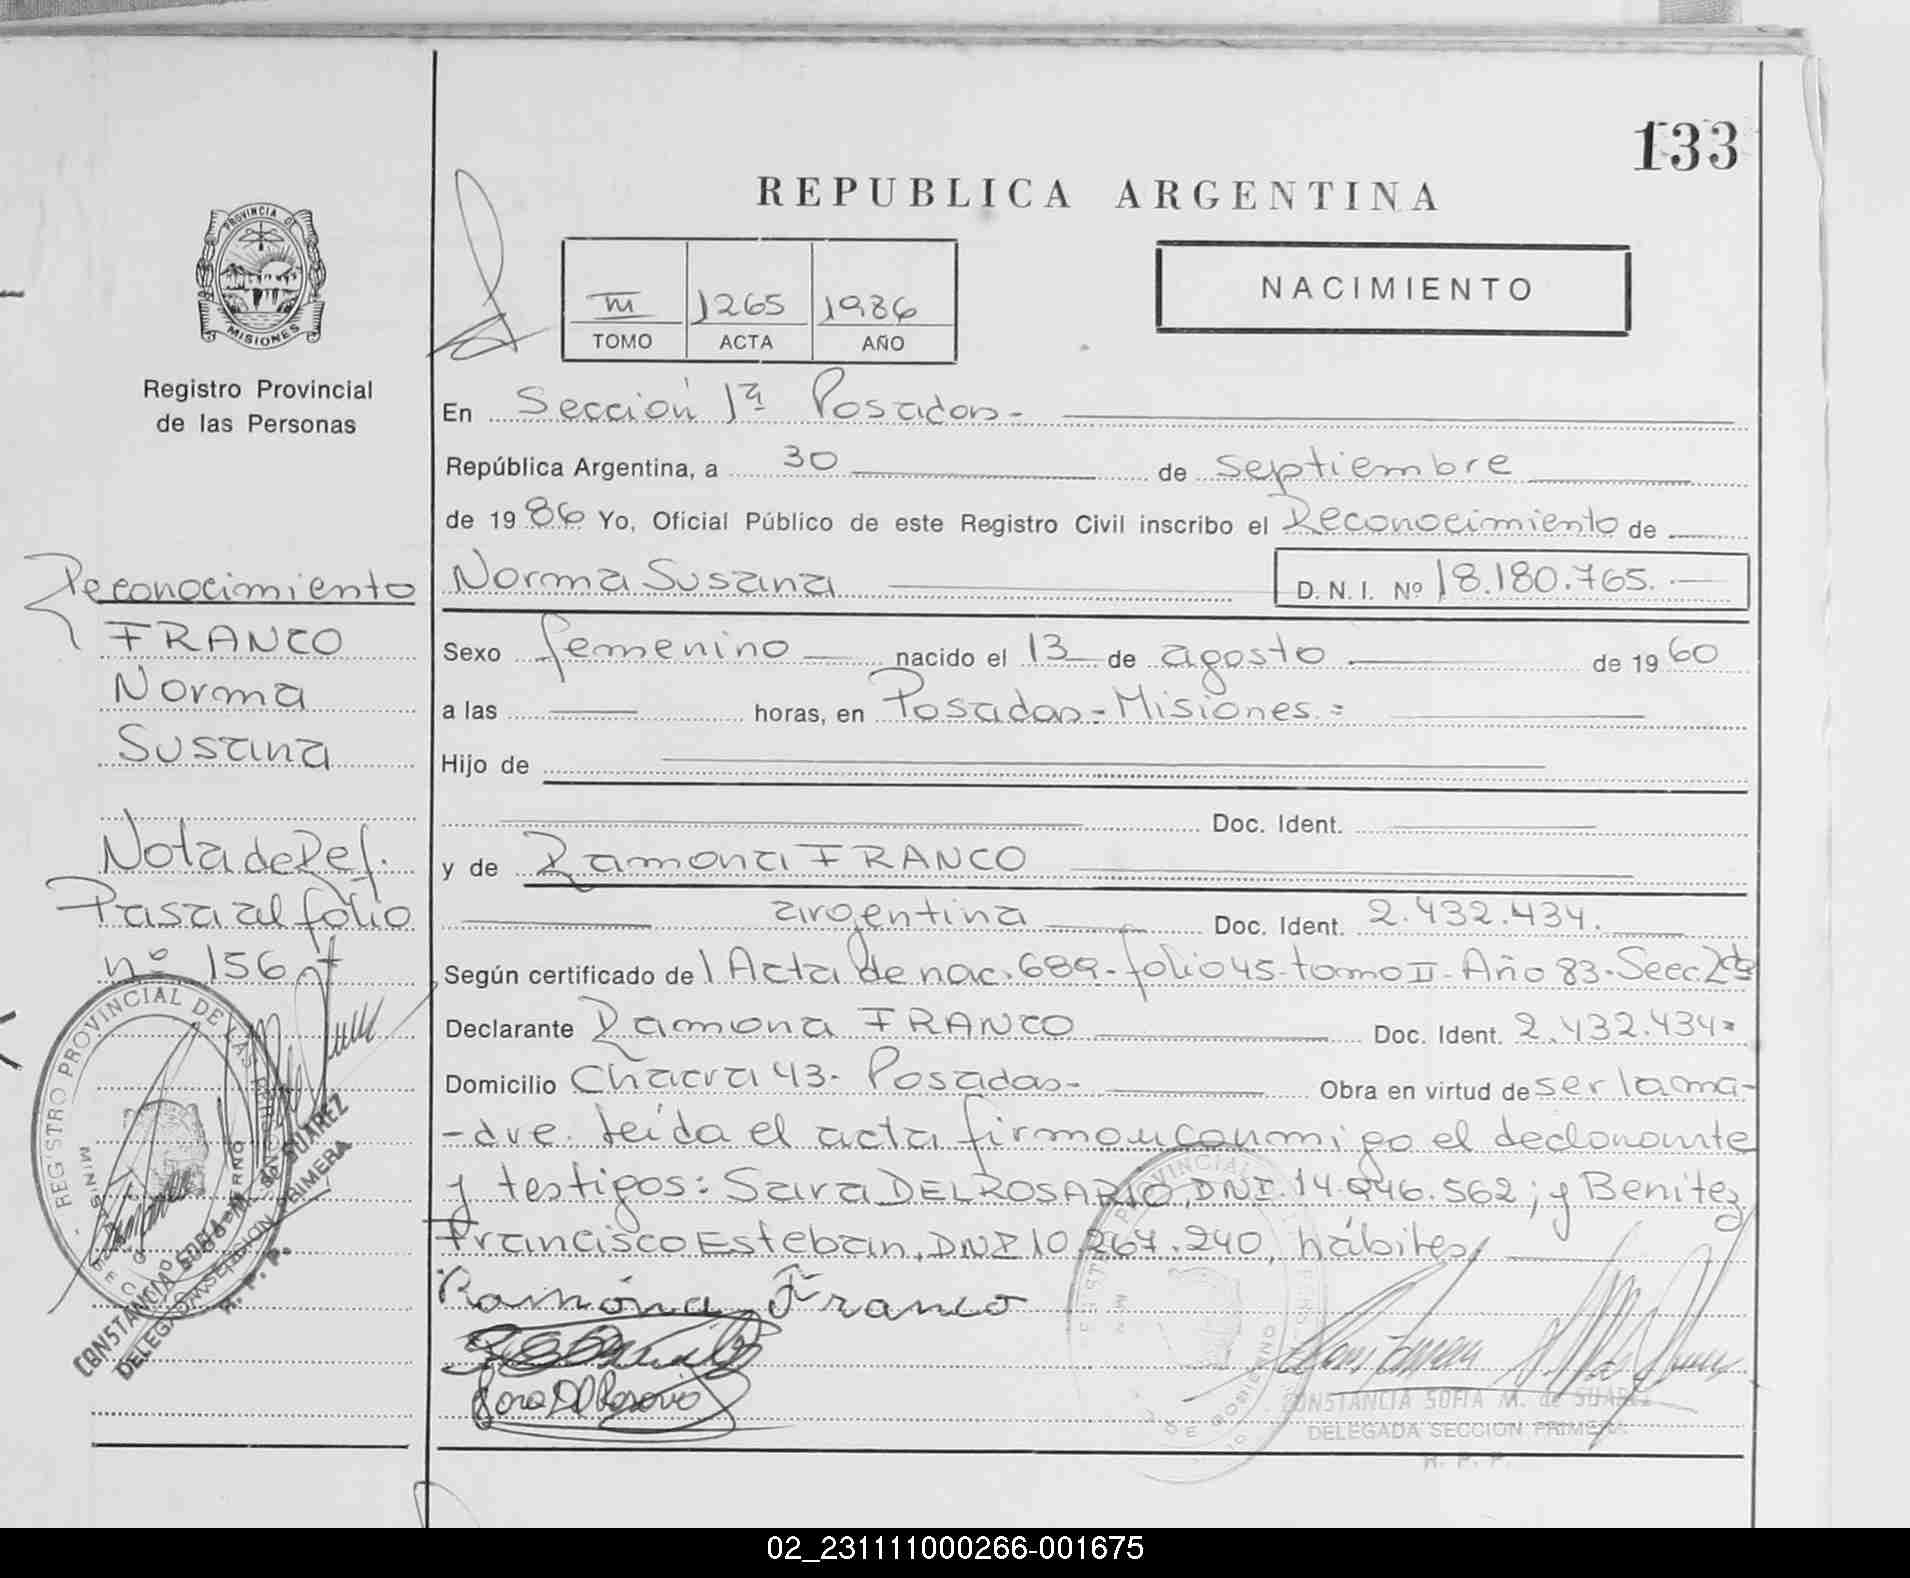 133
REPUBLICA ARGENTINA
PROVINCIA DE
MISIONES
Registro Provincial
de las Personas
III 1265 1986
TOMO ACTA AÑO
NACIMIENTO
En Sección 1ª Posadas-
República Argentina, a 30 de septiembre
de 1986 Yo, Oficial Público de este Registro Civil inscribo el Reconocimiento de
Norma Susana D. N. I. Nº 18.180.765.
Sexo femenino nacido el 13 de agosto de 1960
a las horas, en Posadas-Misiones.=
Hijo de
Doc. Ident.
y de Ramona FRANCO
argentina Doc. Ident. 2.432.434.
Según certificado de 1 Acta de nac. 689-folio 45-tomo II-Año 83-Secc. 2da
Declarante Ramona FRANCO Doc. Ident. 2.432.434=
Domicilio Chacra 43- Posadas- Obra en virtud de ser la ma-
-dre. Leída el acta firman conmigo el declarante
y testigos: Sara DEL ROSARIO, DNI. 14.946.562; y Benitez
Francisco Esteban, DNI 10.267.240, hábiles
Ramóna Franco
Sara Del Rosario
CONSTANCIA SOFIA M. de SUAREZ
DELEGADA SECCION PRIMERA
R. P. P.
Reconocimiento
FRANCO
Norma
Susana
Nota de Ref.
Pasa al folio
nº 156
REGISTRO PROVINCIAL DE LAS PERSONAS
CONSTANCIA SOFIA M. de SUAREZ
DELEGADA SECCION PRIMERA
R. P. P.
02_231111000266-001675